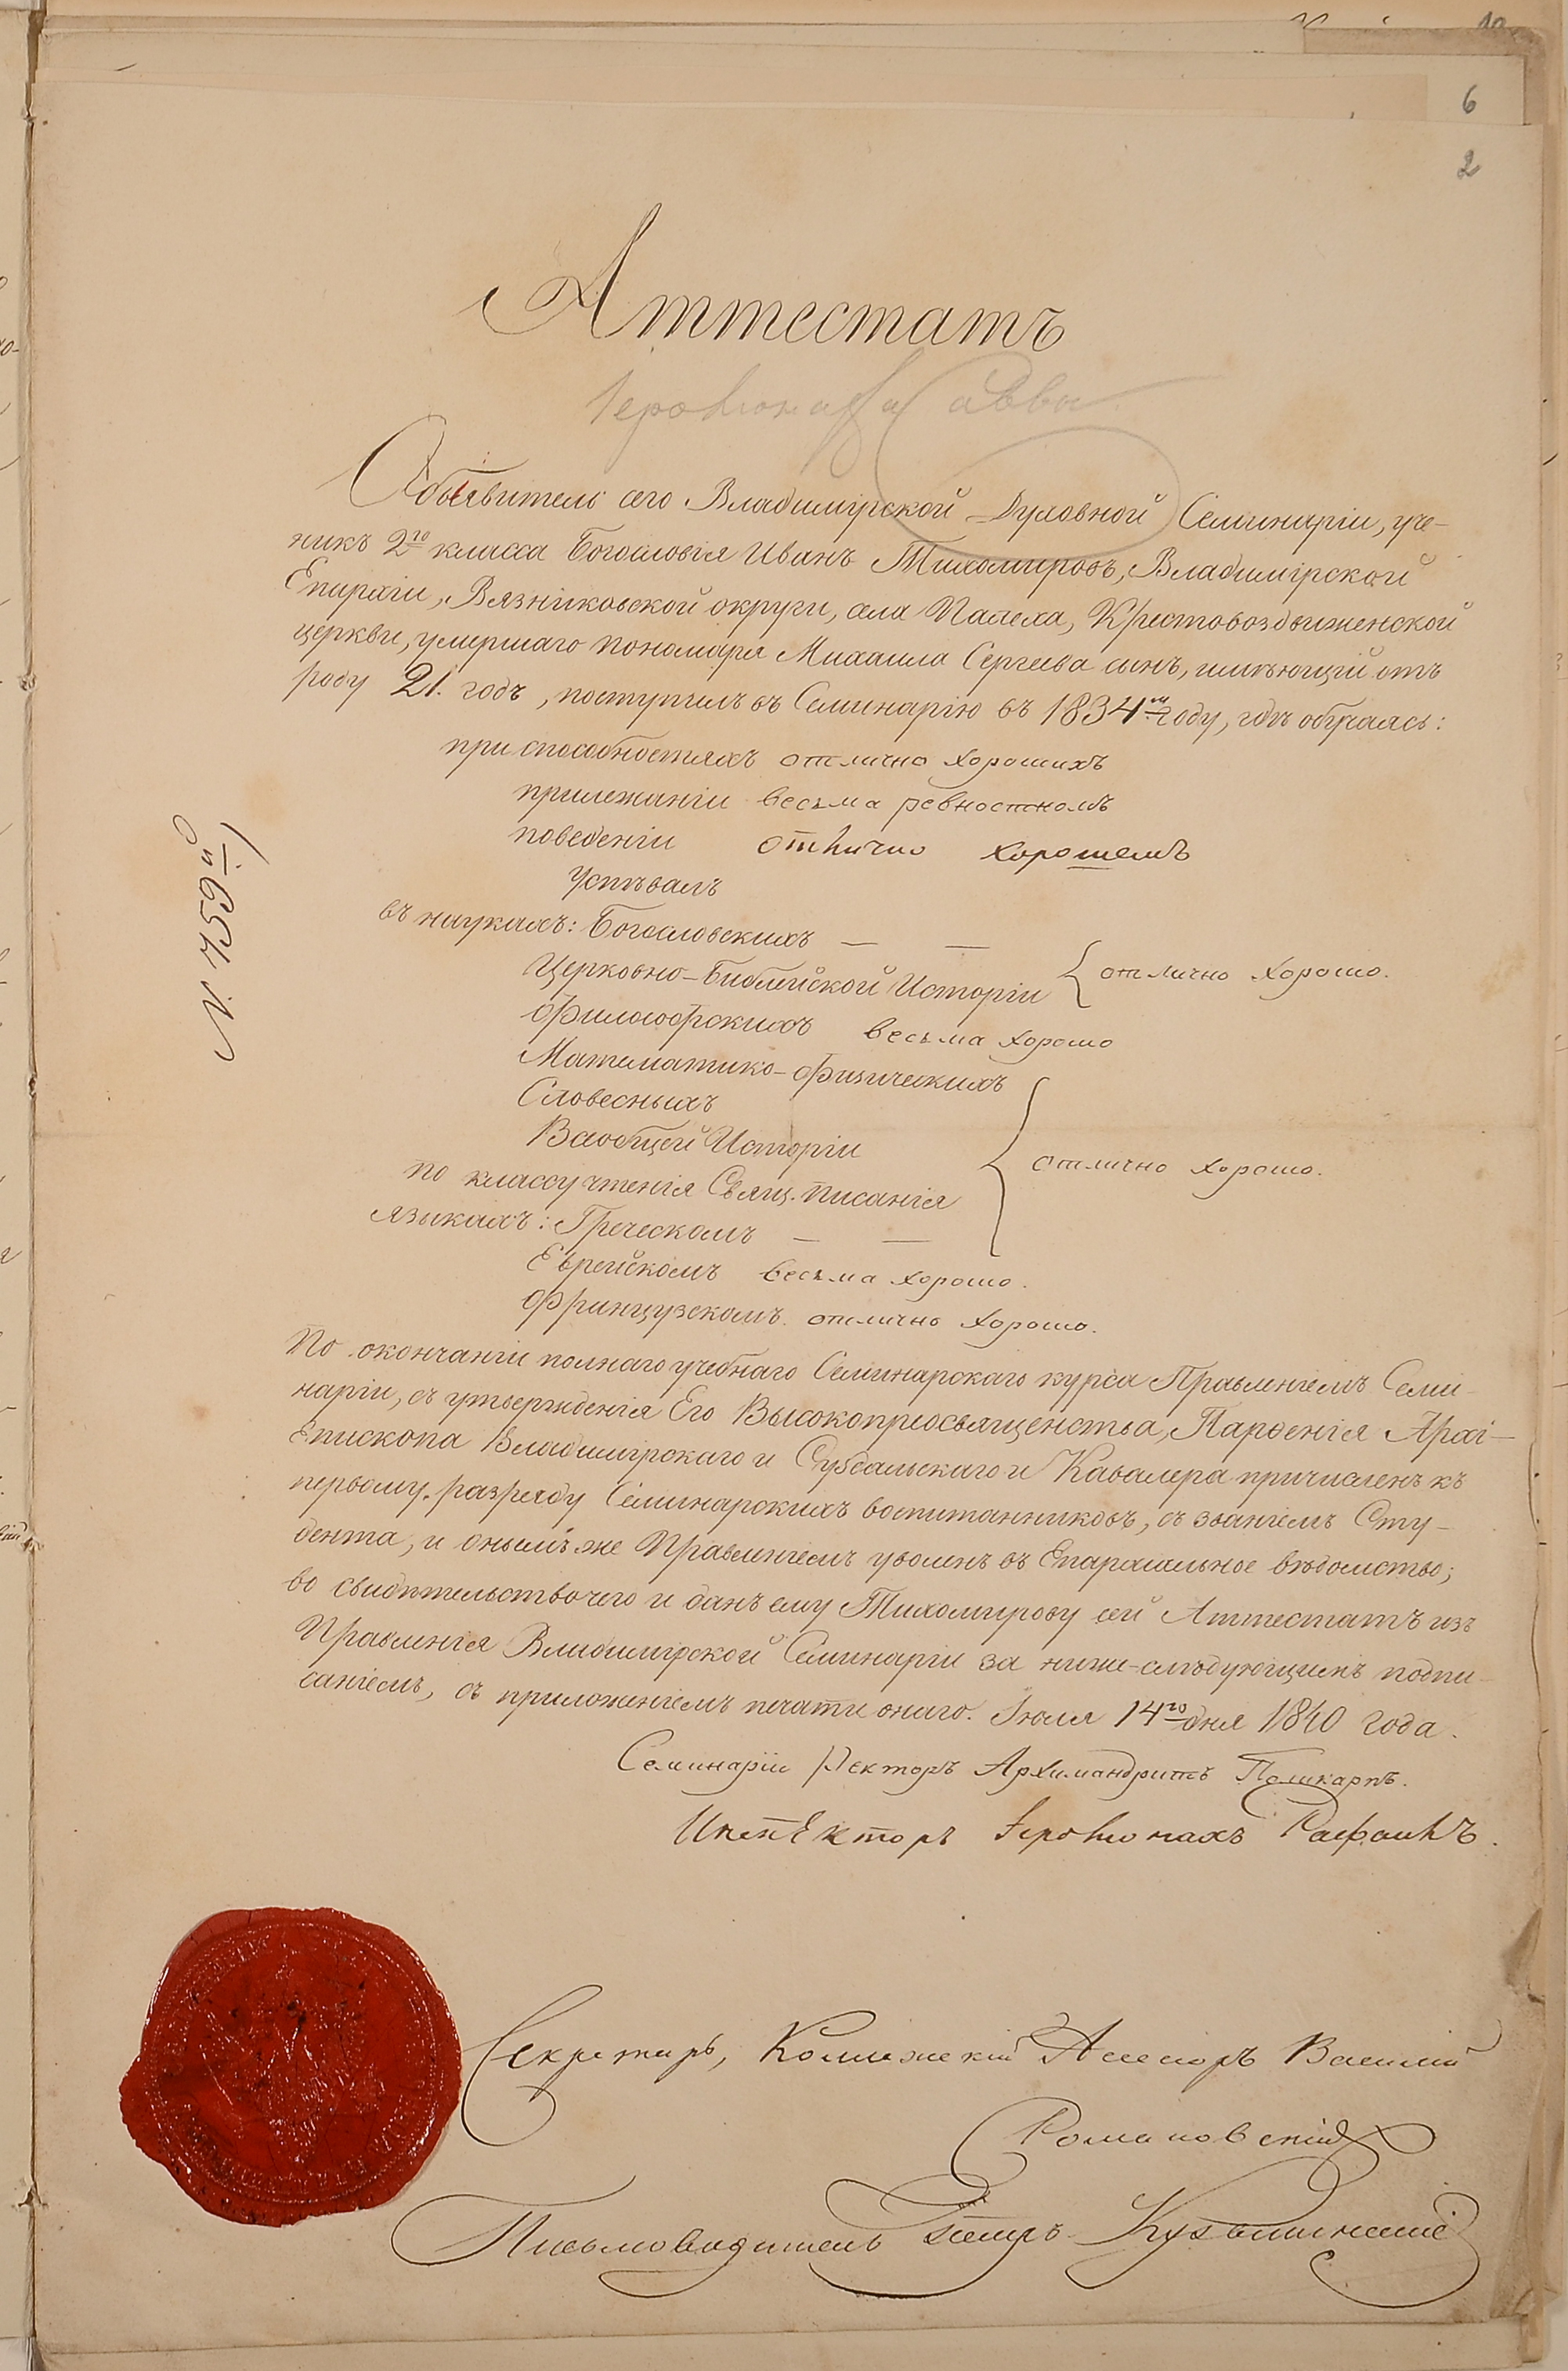 6
2
Аттестатъ
Іеромонаха Саввы
Объявитель сего Владимірской Духовной Семинаріи, уче-
никъ 2го класса Богословія Иванъ Тихомировъ, Владимірской
Епархіи, Вязниковской округи, села Палеха, Крестовоздвиженской
церкви, умершаго пономаря Михаила Сергеева сынъ, имѣющій отъ
роду 21. годъ, поступилъ въ Семинарію въ 1834м году, гдѣ обучаясь:
при способностяхъ отлично хорошихъ
прилежаніи весьма ревностномъ
поведеніи отлично хорошемъ
Успѣвалъ
въ наукахъ: Богословскихъ — —
Церковно-Библейской Исторіи отлично хорошо.
Философскихъ весьма хорошо
Математико-физическихъ
Словесныхъ
Всеобщей Исторіи
отлично хорошо.
по классу чтенія Свящ. Писанія
языкахъ: Греческомъ — —
Еврейскомъ весьма хорошо.
Французскомъ отлично хорошо.
По окончаніи полнаго учебнаго Семинарскаго курса Правленіемъ Семи-
наріи, съ утвержденія Его Высокопреосвященства, Парѳенія Архі-
Епископа Владимірскаго и Суздальскаго и Кавалера причисленъ къ
первому разряду Семинарскихъ воспитанниковъ, съ званіемъ Сту-
дента, и онымъ же Правленіемъ уволенъ въ Епархіальное вѣдомство;
во свидѣтельство чего и данъ ему Тихомирову сей Аттестатъ изъ
Правленія Владимірской Семинаріи за ниже-слѣдующимъ подпи-
саніемъ, съ приложеніемъ печати онаго. Іюля 14го дня 1840 года.
Семинаріи Ректоръ Архимандритъ Поликарпъ.
Инспекторъ Іеромонахъ Рафаилъ.
Секретарь, Коллежскій Ассесоръ Василій
Романовскій
Письмоводитель Петръ
N. 759й